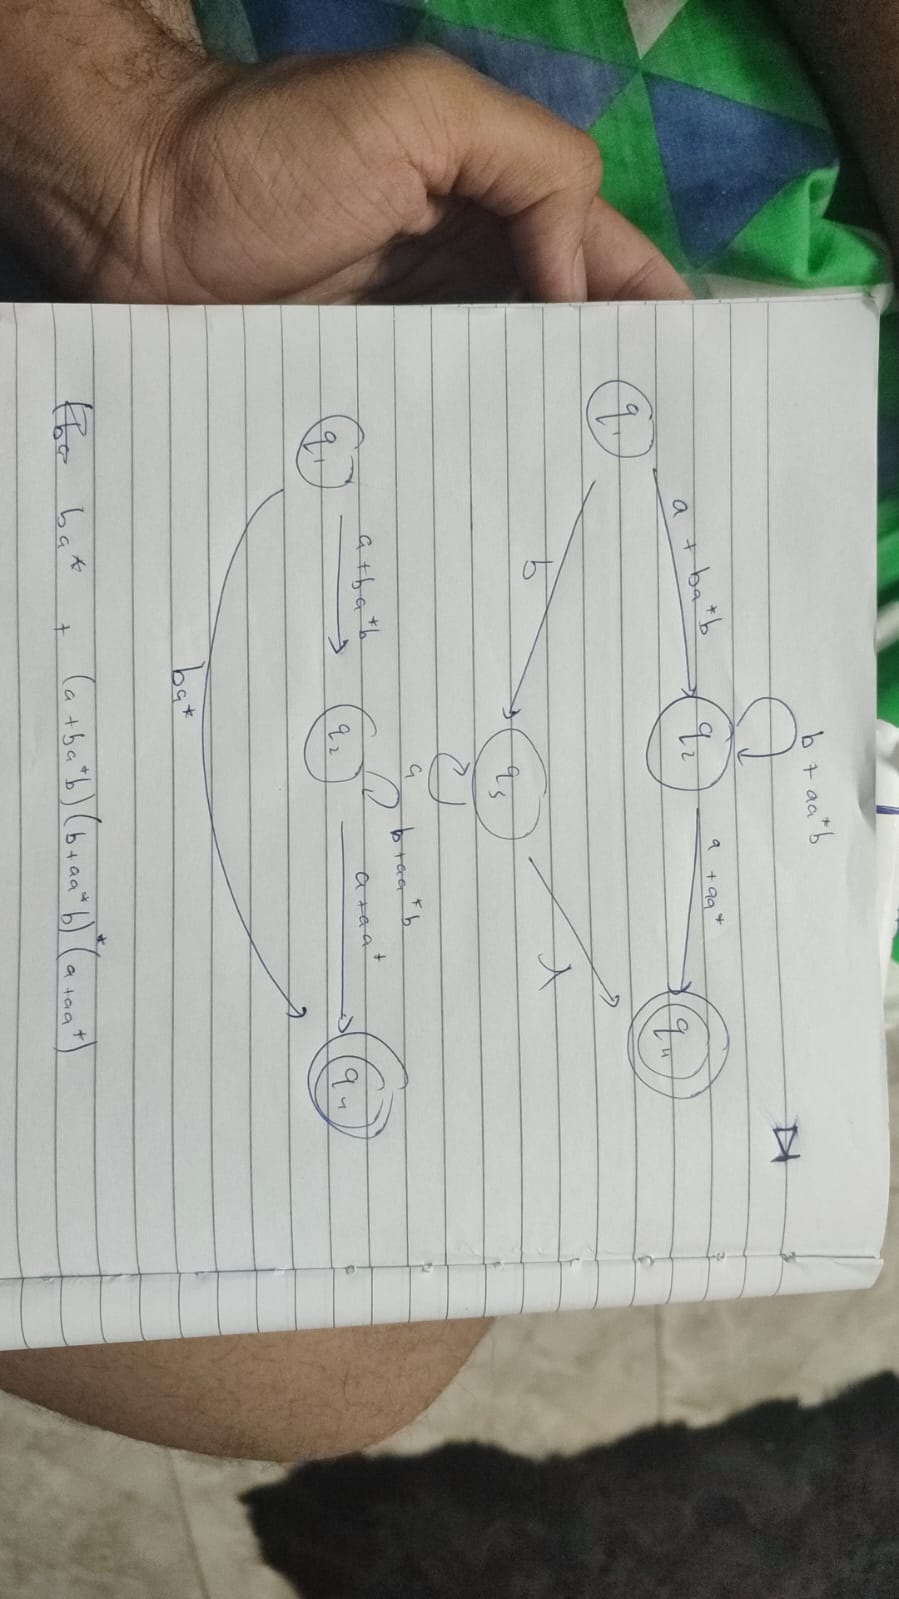 b + aa*b
a + ba*b
q₂
a + aa*
q₁
q₄
b
λ
q₃
a
b+aa*b
a+ba*b
a+aa*
q₁
q₂
q₄
ba*
ba* + (a+ba*b)(b+aa*b)*(a+aa*)